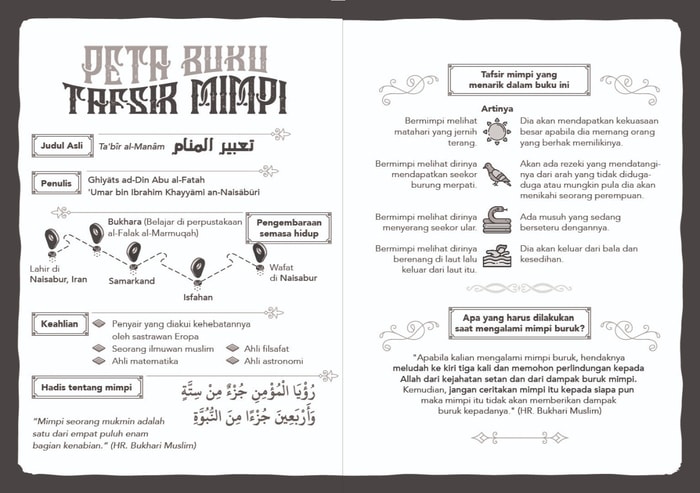 PETA BUKU
TAFSIR MIMPI
Judul Asli
Ta'bîr al-Manâm تعبير المنام
Penulis
Ghiyâts ad-Dîn Abu al-Fatah
'Umar bin Ibrahim Khayyâmi an-Naisâbûri
Bukhara (Belajar di perpustakaan
al-Falak al-Marmuqah)
Pengembaraan
semasa hidup
Lahir di
Naisabur, Iran
Samarkand
Isfahan
Wafat
di Naisabur
Keahlian
Penyair yang diakui kehebatannya
oleh sastrawan Eropa
Seorang ilmuwan muslim
Ahli filsafat
Ahli matematika
Ahli astronomi
Hadis tentang mimpi
رُؤْيَا الْمُؤْمِنِ جُزْءٌ مِنْ سِتَّةٍ
وَأَرْبَعِينَ جُزْءًا مِنَ النُّبُوَّةِ
"Mimpi seorang mukmin adalah
satu dari empat puluh enam
bagian kenabian." (HR. Bukhari Muslim)
Tafsir mimpi yang
menarik dalam buku ini
Artinya
Bermimpi melihat
matahari yang jernih
terang.
Dia akan mendapatkan kekuasaan
besar apabila dia memang orang
yang berhak memilikinya.
Bermimpi melihat dirinya
mendapatkan seekor
burung merpati.
Akan ada rezeki yang mendatangi-
nya dari arah yang tidak diduga-
duga atau mungkin pula dia akan
menikahi seorang perempuan.
Bermimpi melihat dirinya
menyerang seekor ular.
Ada musuh yang sedang
berseteru dengannya.
Bermimpi melihat dirinya
berenang di laut lalu
keluar dari laut itu.
Dia akan keluar dari bala dan
kesedihan.
Apa yang harus dilakukan
saat mengalami mimpi buruk?
"Apabila kalian mengalami mimpi buruk, hendaknya
meludah ke kiri tiga kali dan memohon perlindungan kepada
Allah dari kejahatan setan dan dari dampak buruk mimpi.
Kemudian, jangan ceritakan mimpi itu kepada siapa pun
maka mimpi itu tidak akan memberikan dampak
buruk kepadanya." (HR. Bukhari Muslim)